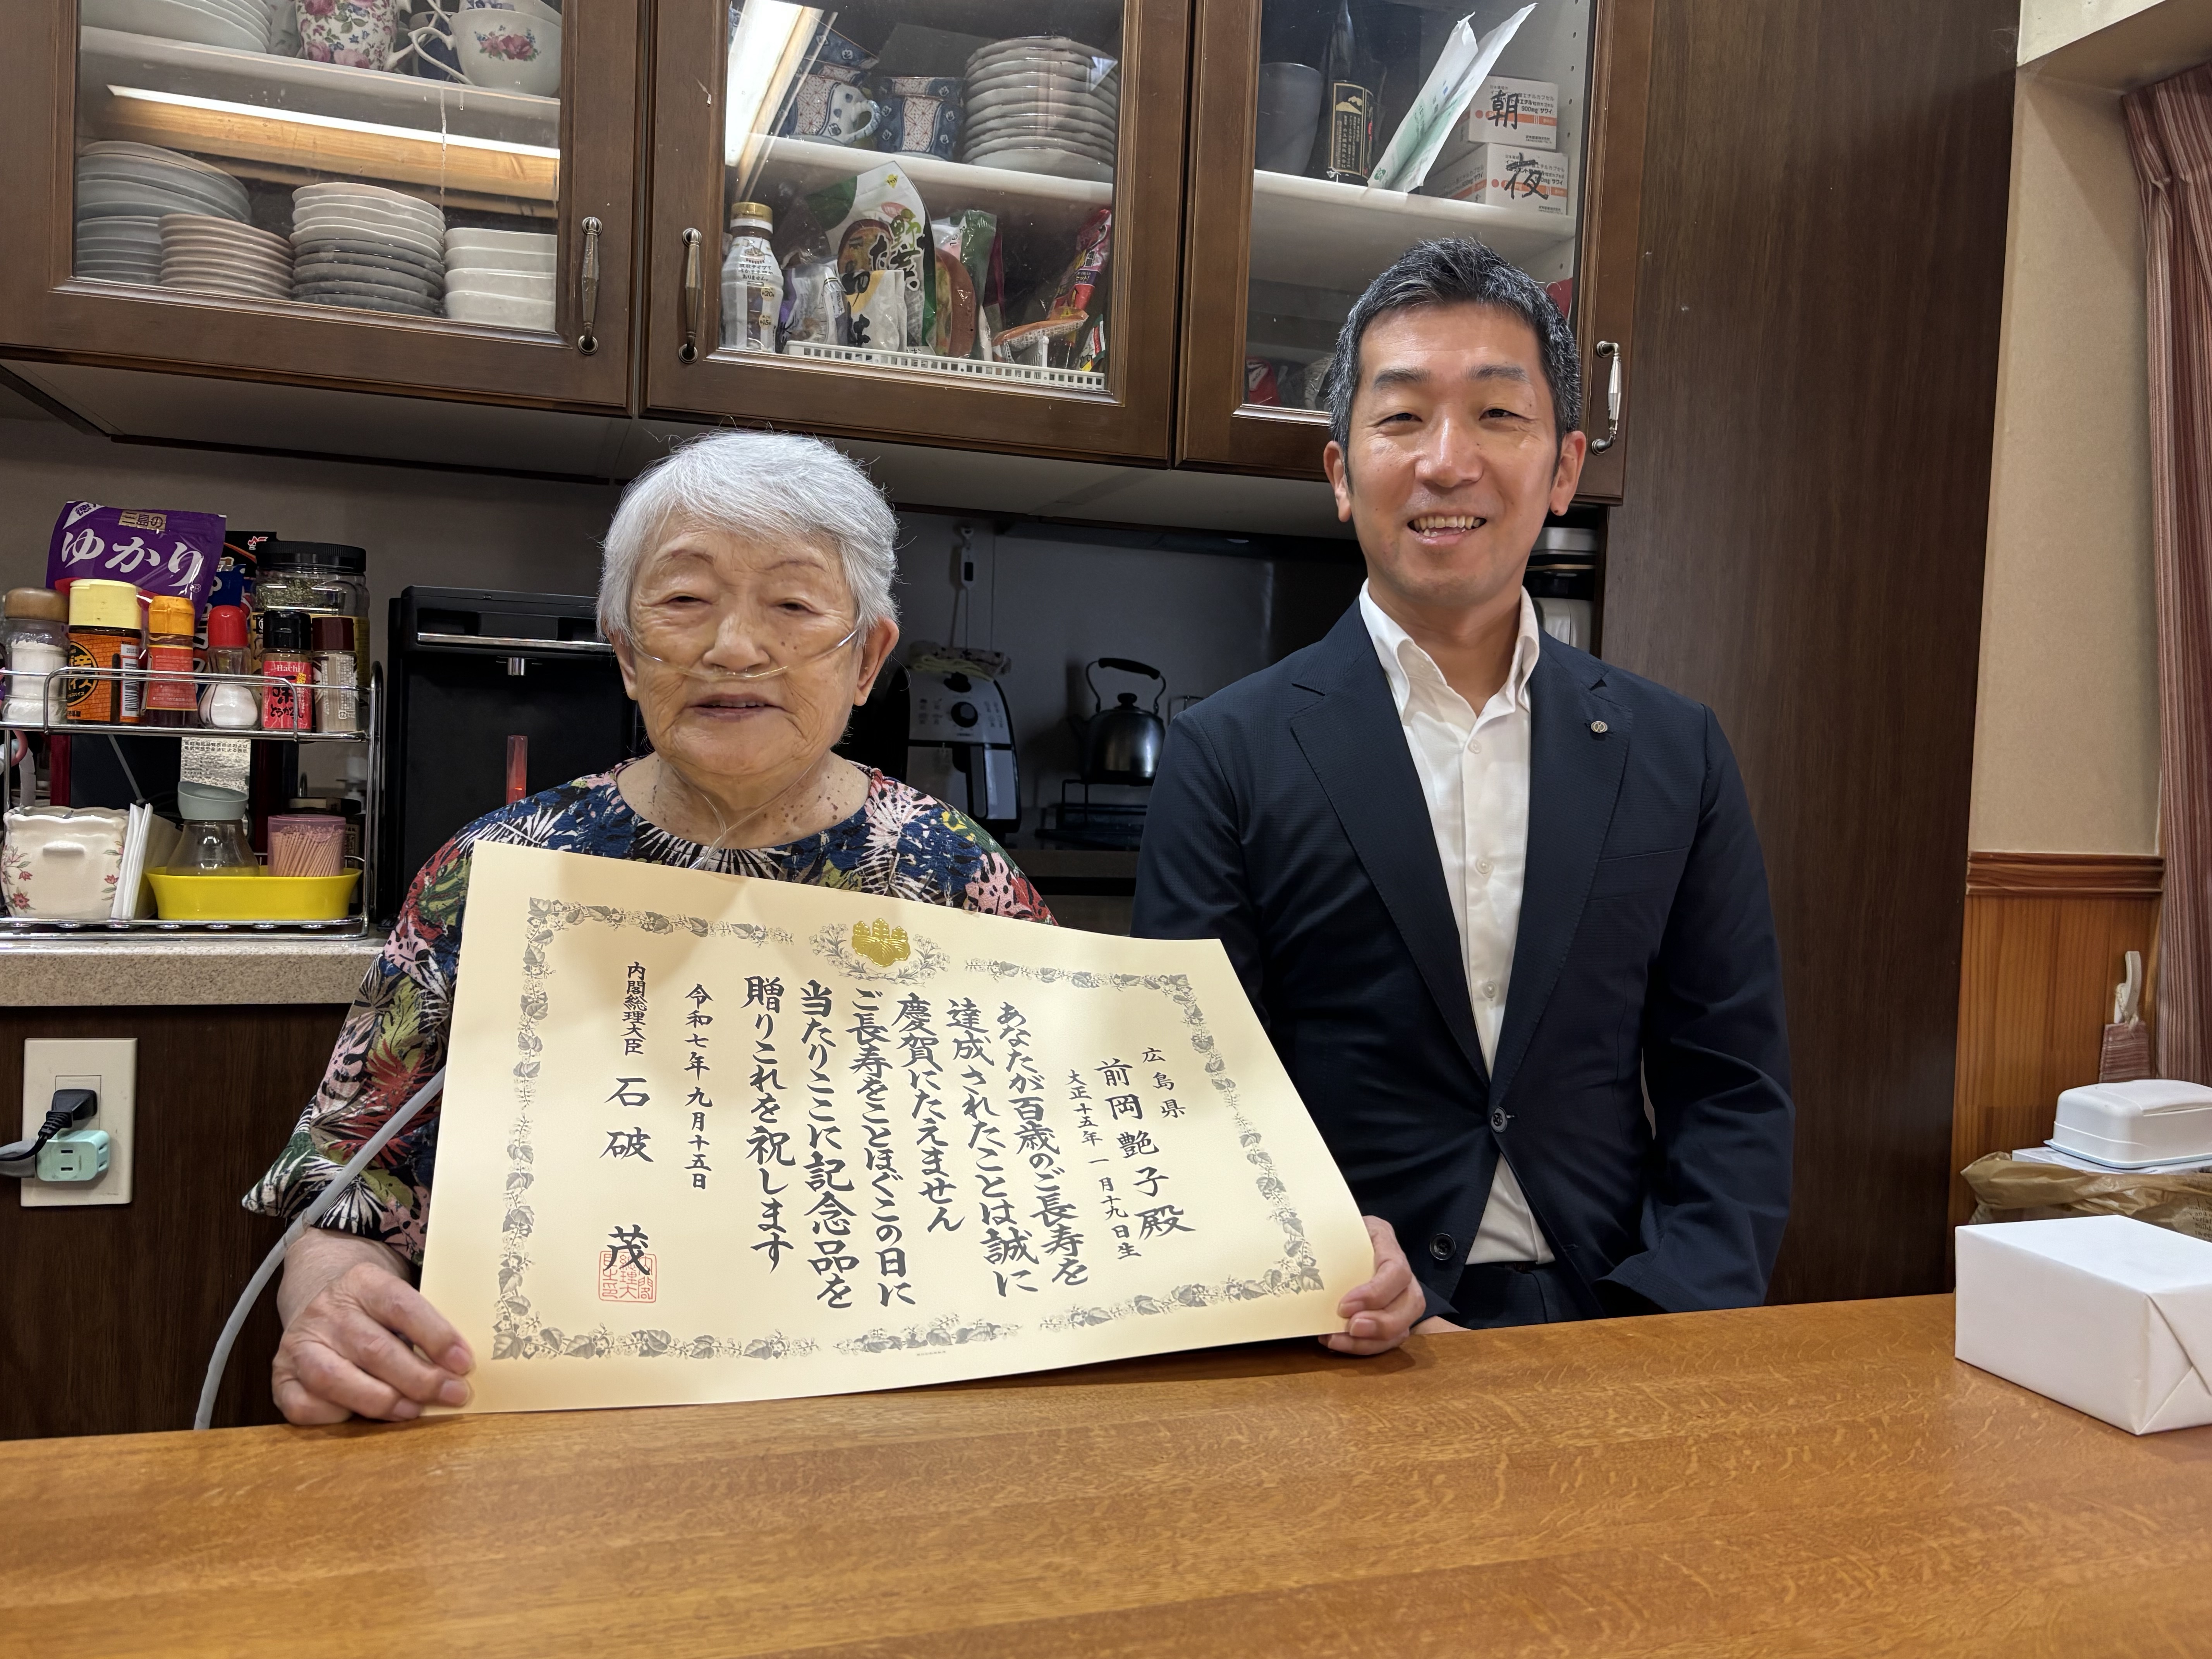 広島県
前岡艶子殿
大正十五年一月十九日生
あなたが百歳のご長寿を
達成されたことは誠に
慶賀にたえません
ご長寿をことほぐこの日に
当たりここに記念品を
贈りこれを祝します
令和七年九月十五日
内閣総理大臣 石破 茂
朝
夜
三島の
ゆかり